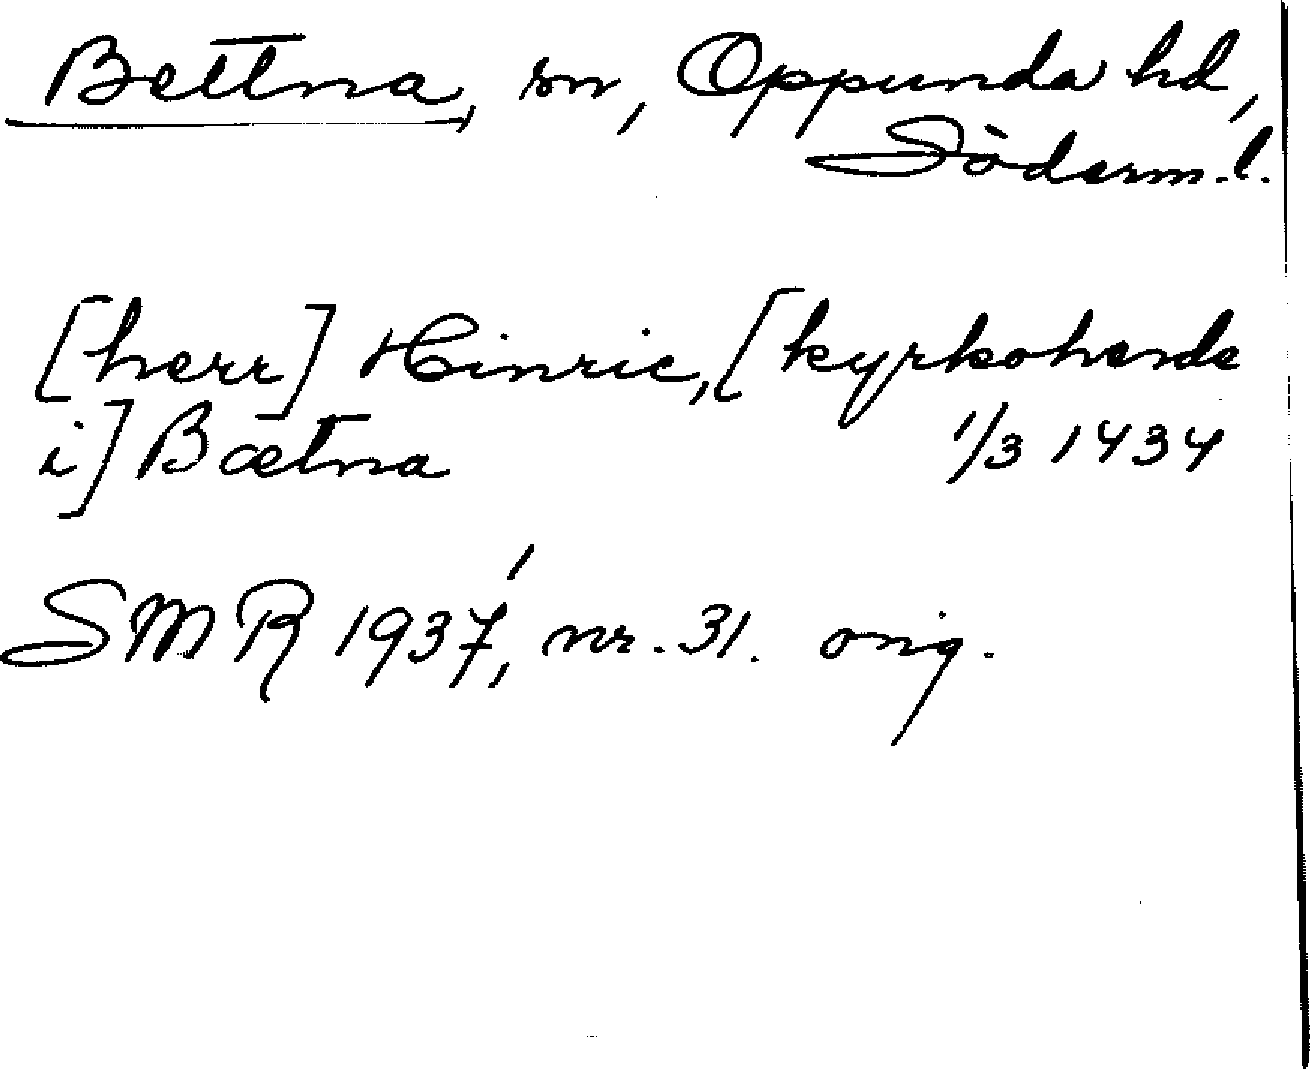 Bettna, sn, Oppunda hd,
Söderm.l.
[herr] Hinric, [kyrkoherde
i] Bætna 1/3 1434
SMR 1937, nr. 31. orig.